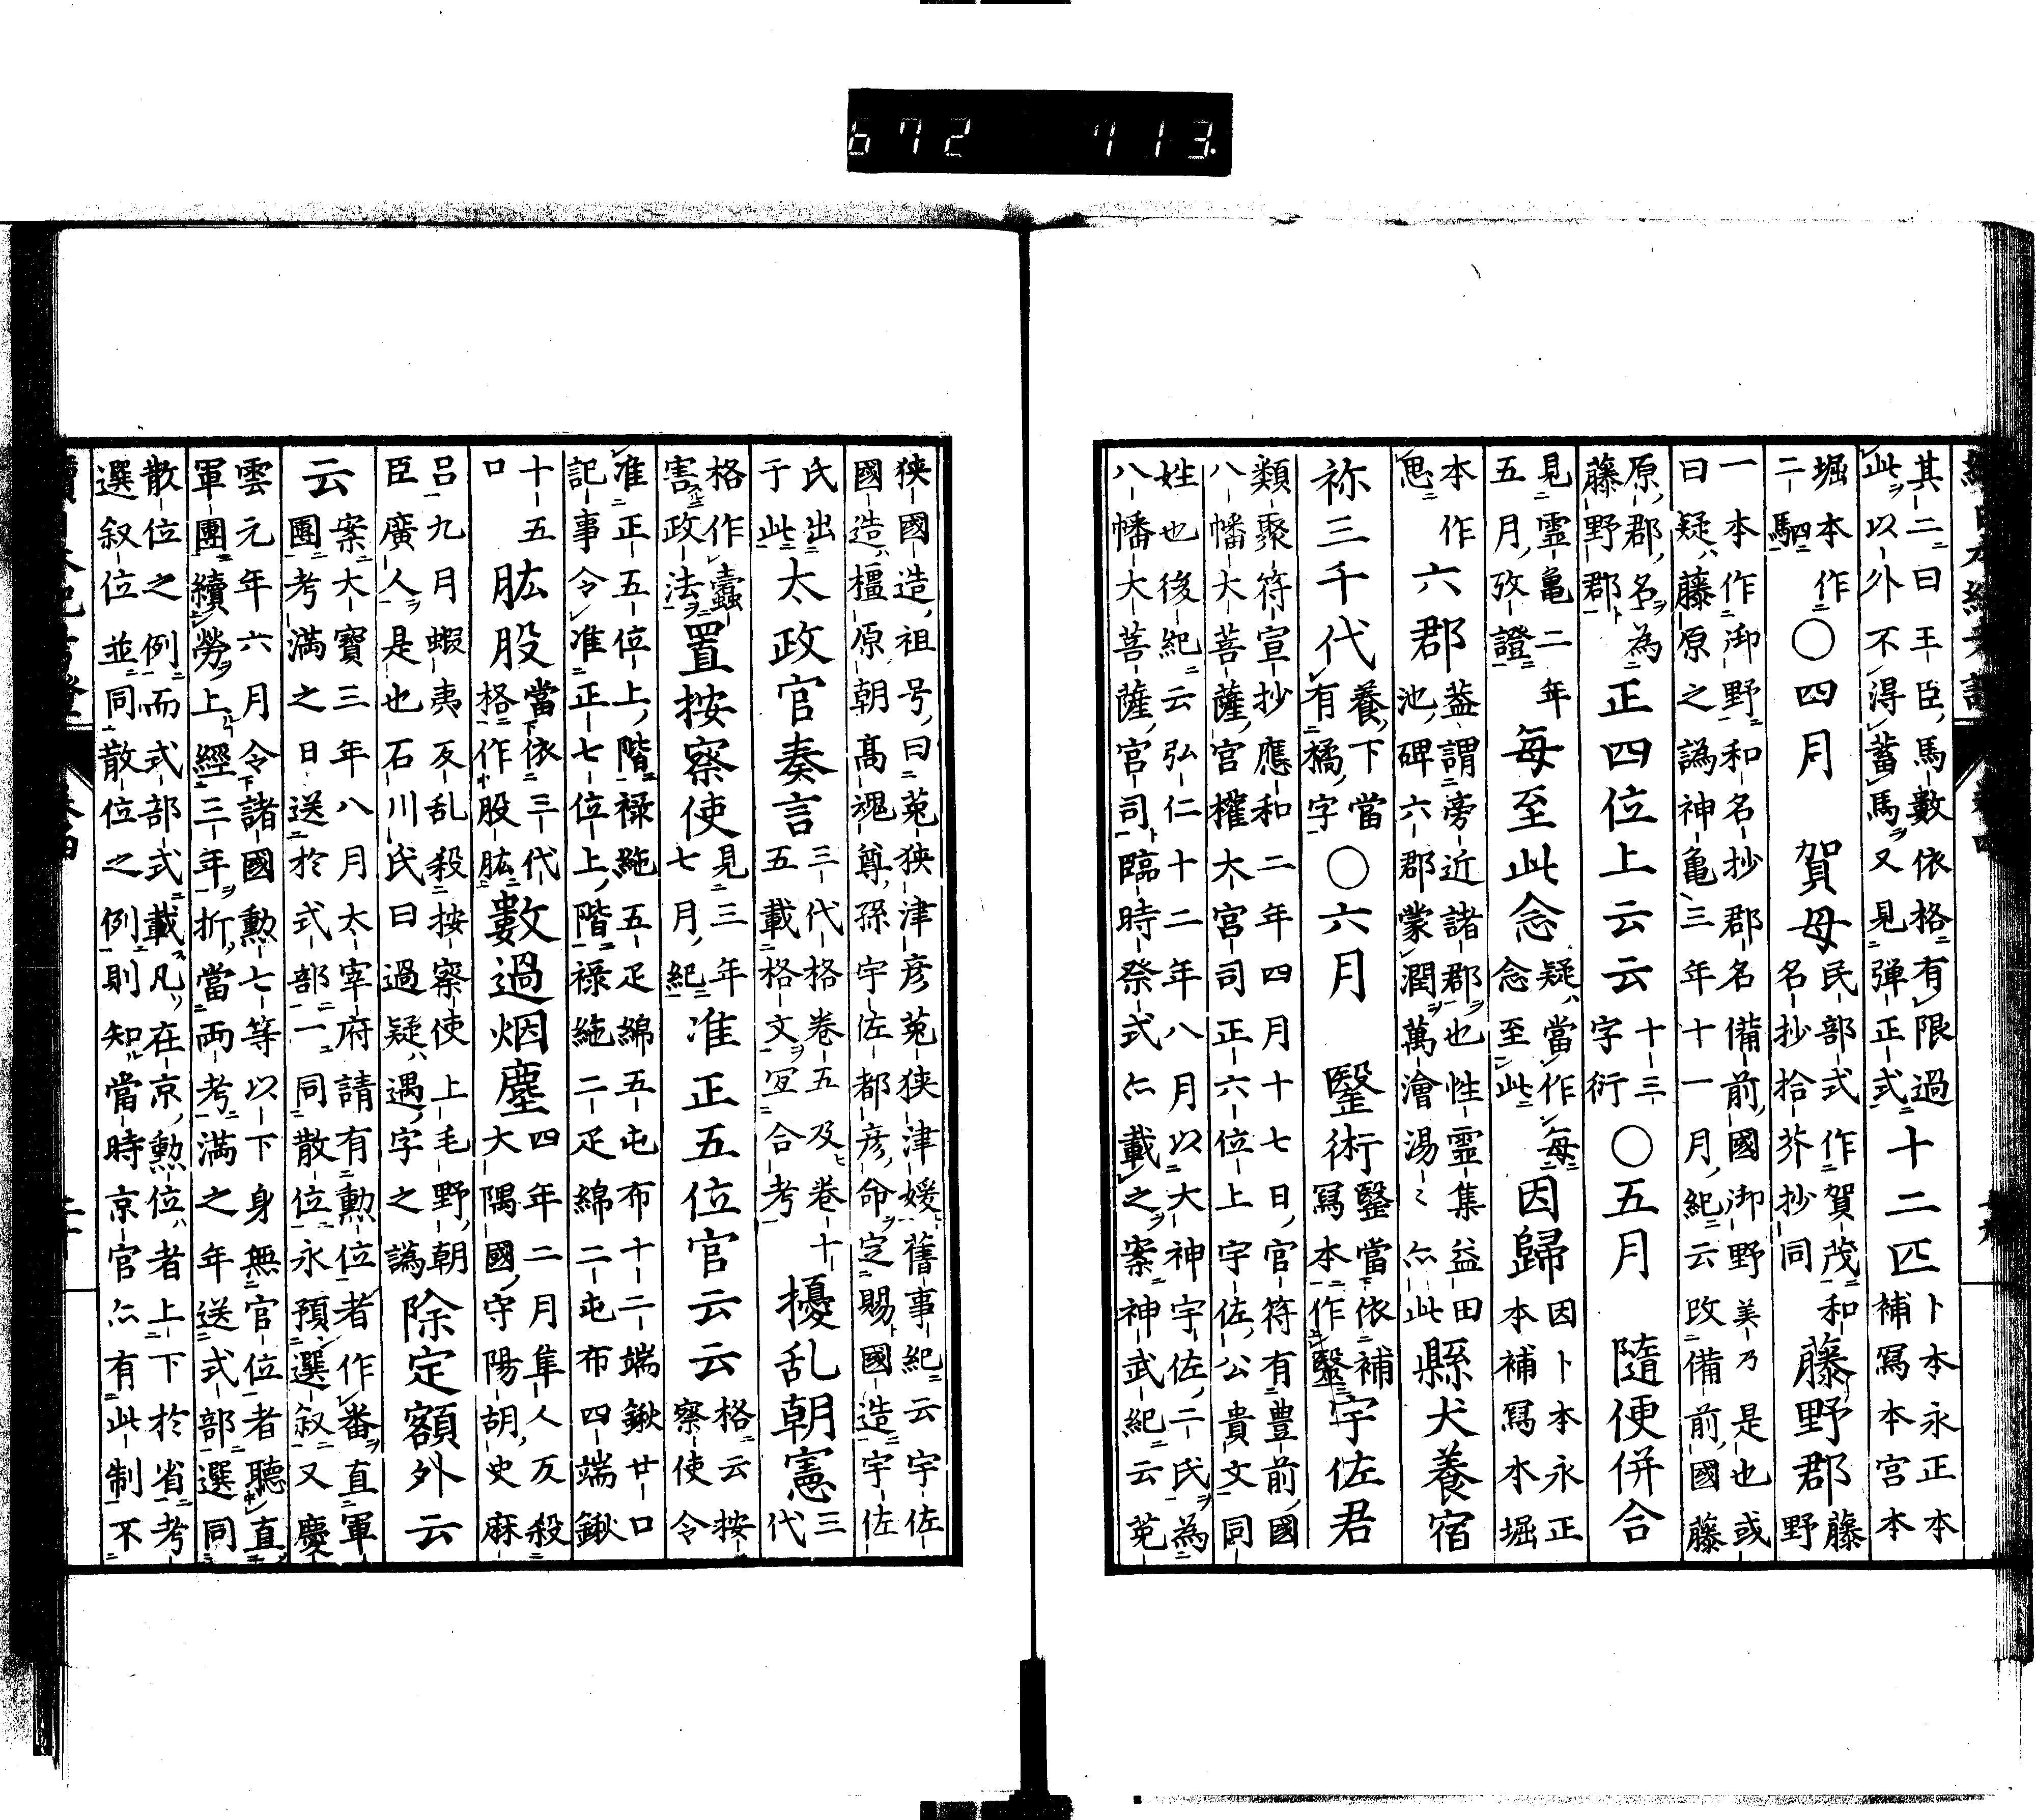 672 713
其二曰王臣馬數依格有限過
此以外不得蓄馬又見弾正式
十二匹
卜本永正本
補寫本宮本
堀本作
二駟
○四月　賀母
民部式作賀茂和
名抄拾芥抄同
藤野郡
藤
野
一本作御野和名抄郡名備前國御野美乃是也或
曰疑藤原之譌神亀三年十一月紀云改備前國藤
原郡名為
藤野郡
正四位上云云
十三
字衍
○五月　隨便併合
見霊亀二年
五月攷證
毎至此念
疑當作毎
念至此
因歸
因卜本永正
本補寫本堀
本作
思
六郡
盖謂旁近諸郡也性霊集益田
池碑六郡蒙潤萬濬湯〻亦此
縣犬養宿
祢三千代
養下當
有橘字
○六月　毉術
毉當依補
寫本作醫
宇佐君
類聚符宣抄應和二年四月十七日官符有豊前國
八幡大菩薩宮權大宮司正六位上宇佐公貴文同
姓也後紀云弘仁十二年八月以大神宇佐二氏為
八幡大菩薩宮司臨時祭式亦載之案神武紀云菟
狭國造祖号曰菟狭津彦菟狭津媛舊事紀云宇佐
國造橿原朝髙魂尊孫宇佐都彦命定賜國造宇佐
氏出
于此
太政官奏言
三代格卷五及卷十
五載格文宜合考
擾乱朝憲
三
代
格作蠹
害政法
置按察使
見三年
七月紀
准正五位官云云
格云按
察使令
准正五位上階禄絁五疋綿五屯布十二端鍬廿口
記事令准正七位上階禄絁二疋綿二屯布四端鍬
十五
口
肱股
當依三代
格作股肱
數過烟塵
四年二月隼人反殺
大隅國守陽胡史麻
呂九月蝦夷反乱殺按察使上毛野朝
臣廣人是也石川氏曰過疑遇字之譌
除定額外云
云
案大寳三年八月太宰府請有勲位者作番直軍
團考満之日送於式部一同散位永預選叙又慶
雲元年六月令諸國勲七等以下身無官位者聽直
軍團續勞上經三年折當両考満之年送式部選同
散位之例而式部式載凡在京勲位者上下於省考
選叙位並同散位之例則知當時京官亦有此制不